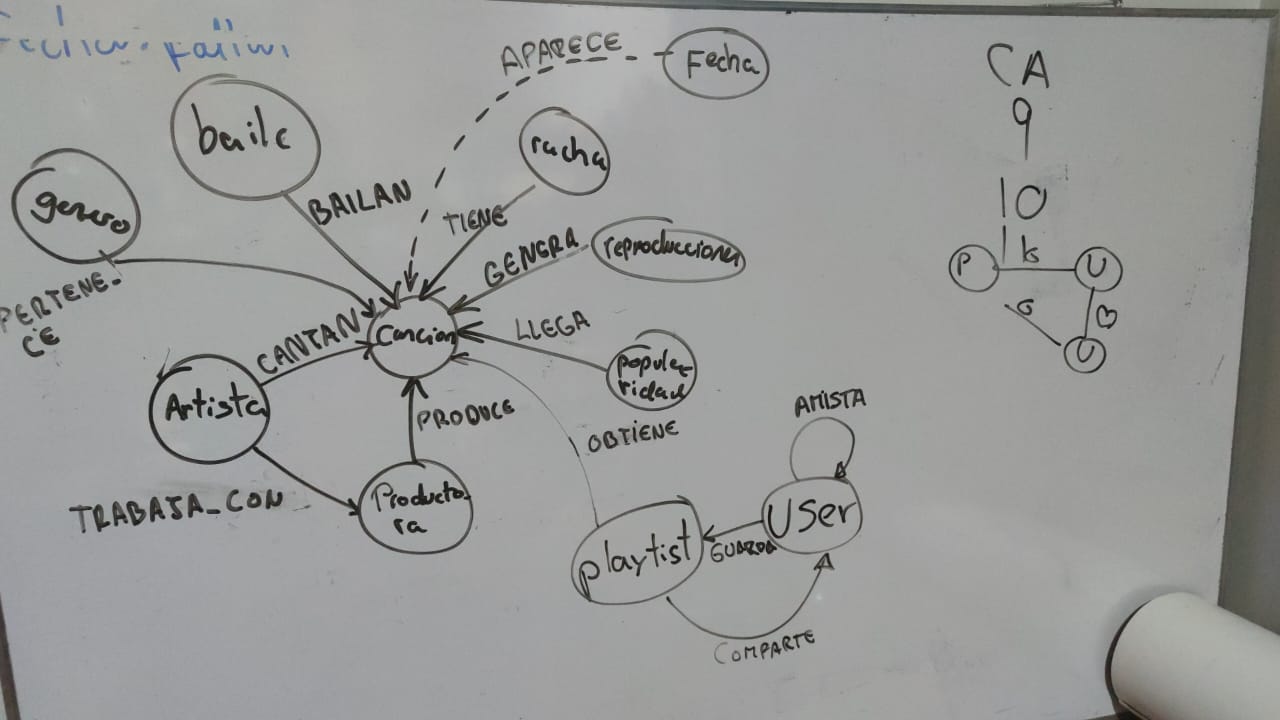 APARECE
Fecha
baile
racha
genero
BAILAN
TIENE
GENERA
reproducciones
PERTENE-
CE
CANTAN
Cancion
LLEGA
popula-
ridad
Artista
PRODUCE
OBTIENE
AMISTA
TRABAJA_CON
Producto-
ra
playlist
GUARDA
User
COMPARTE
CA
9
10
P
U
U